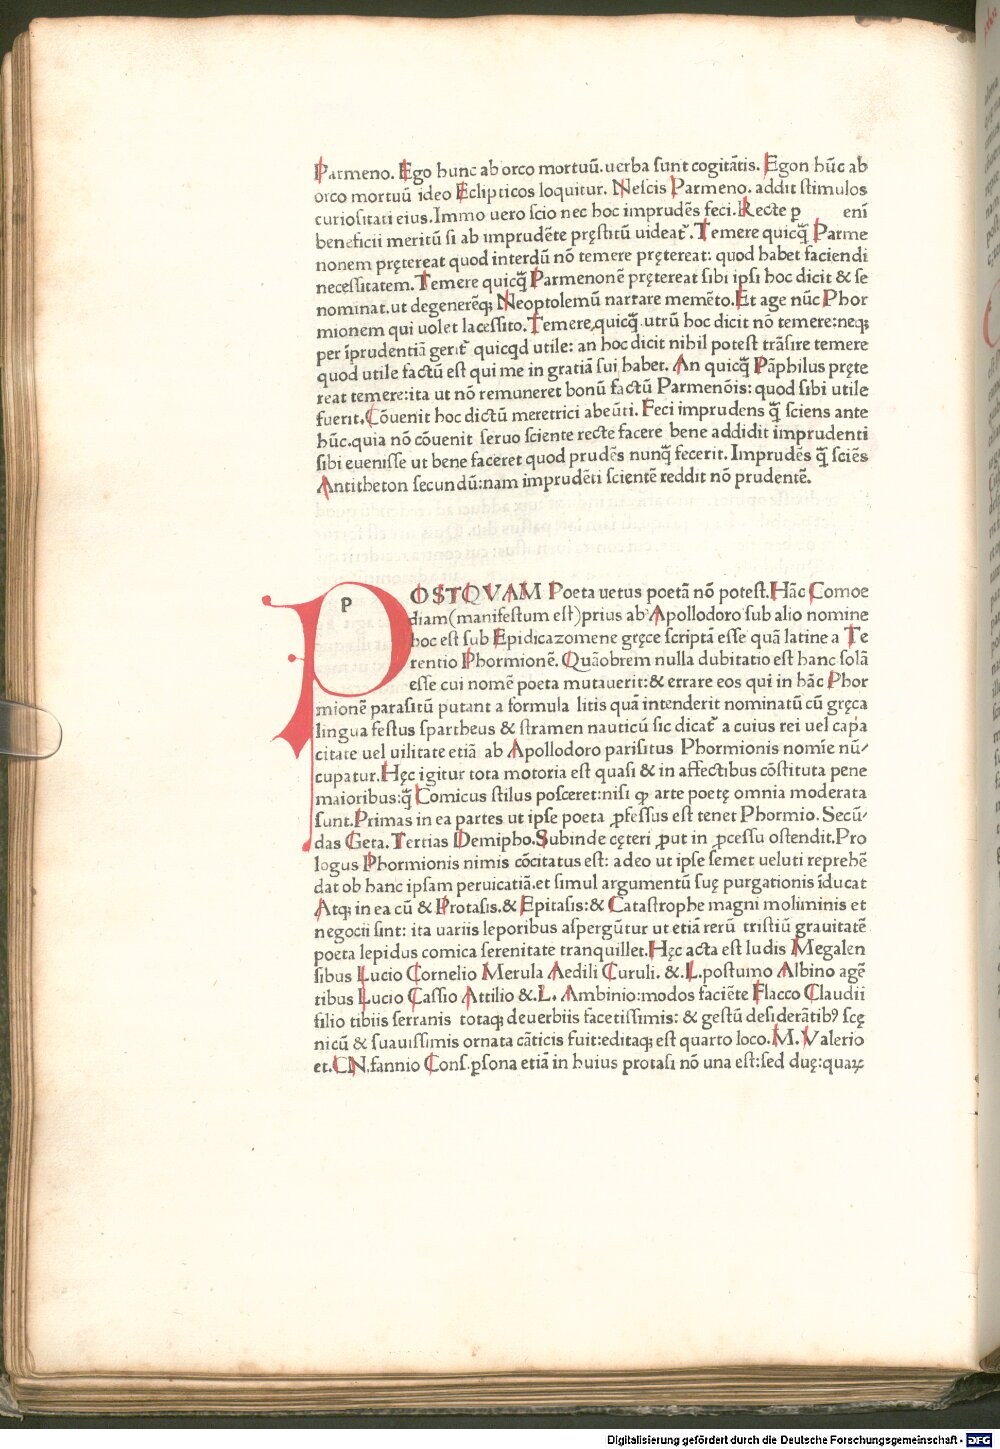 Parmeno. Ego hunc ab orco mortuũ. uerba ſunt cogitãtis. Egon hũc ab
orco mortuũ ideo Eclipticos loquitur. Neſcis Parmeno. addit ſtimulos
curioſitati eius. Immo uero ſcio nec hoc imprudẽs feci. Recte p enĩ
beneficii meritũ ſi ab imprudẽte pręſtitũ uideat᷑. Temere quicq̃ Parme
nonem prętereat quod interdũ nõ temere prętereat: quod habet faciendi
neceſſitatem. Temere quicq̃ Parmenonẽ prętereat ſibi ipſi hoc dicit & ſe
nominat. ut degenerẽq; Neoptolemũ narrare memẽto. Et age nũc Phor
mionem qui uolet laceſſito. Temere, quicq̃ utrũ hoc dicit nõ temere: neq;
per ĩprudentiã gerit᷑ quicqd utile: an hoc dicit nihil poteſt trãſire temere
quod utile factũ eſt qui me in gratiã ſui habet. An quicq̃ Pãphilus pręte
reat temere: ita ut nõ remuneret bonũ factũ Parmenõis: quod ſibi utile
fuerit. Cõuenit hoc dictũ meretrici abeũti. Feci imprudens q̃ ſciens ante
hũc. quia nõ cõuenit ſeruo ſciente recte facere bene addidit imprudenti
ſibi eueniſſe ut bene faceret quod prudẽs nunq̃ fecerit. Imprudẽs q̃ ſciẽs
Antitheton ſecundũ: nam imprudẽti ſcientẽ reddit nõ prudentẽ.
P
OSTQVAM Poeta uetus poetã nõ poteſt. Hãc Comoe
diam (manifeſtum eſt) prius ab Apollodoro ſub alio nomine
hoc eſt ſub Epidicazomene gręce ſcriptã eſſe quã latine a Te
rentio Phormionẽ. Quãobrem nulla dubitatio eſt hanc ſolã
eſſe cui nomẽ poeta mutauerit: & errare eos qui in hãc Phor
mionẽ paraſitũ putant a formula litis quã intenderit nominatũ cũ gręca
lingua feſtus ſpartheus & ſtramen nauticũ ſic dicat᷑ a cuius rei uel capa
citate uel uilitate etiã ab Apollodoro pariſitus Phormionis nomĩe nũ/
cupatur. Hęc igitur tota motoria eſt quaſi & in affectibus cõſtituta pene
maioribus: q̃ Comicus ſtilus poſceret: niſi ꝙ arte poetę omnia moderata
ſunt. Primas in ea partes ut ipſe poeta ꝓfeſſus eſt tenet Phormio. Secũ/
das Geta. Tertias Demipho. Subinde cęteri ꝓut in ꝓceſſu oſtendit. Pro
logus Phormionis nimis cõcitatus eſt: adeo ut ipſe ſemet ueluti reprehẽ
dat ob hanc ipſam peruicatiã. et ſimul argumentũ ſuę purgationis ĩducat
Atq; in ea cũ & Protaſis. & Epitaſis: & Cataſtrophe magni moliminis et
negocii ſint: ita uariis leporibus aſpergũtur ut etiã rerũ triſtiũ grauitatẽ
poeta lepidus comica ſerenitate tranquillet. Hęc acta eſt ludis Megalen
ſibus Lucio Cornelio Merula Aedili Curuli. &. L. poſtumo Albino agẽ
tibus Lucio Caſſio Attilio &. L. Ambinio: modos faciẽte Flacco Claudii
filio tibiis ſerranis totaq; deuerbiis facetiſſimis: & geſtũ deſiderãtibꝰ ſcę
nicũ & ſuauiſſimis ornata cãticis fuit: editaq; eſt quarto loco. M. Valerio
et. CN. fannio Conſ. ꝑſona etiã in huius protaſi nõ una eſt: ſed duę: quaꝝ
Digitalisierung gefördert durch die Deutsche Forschungsgemeinschaft - DFG